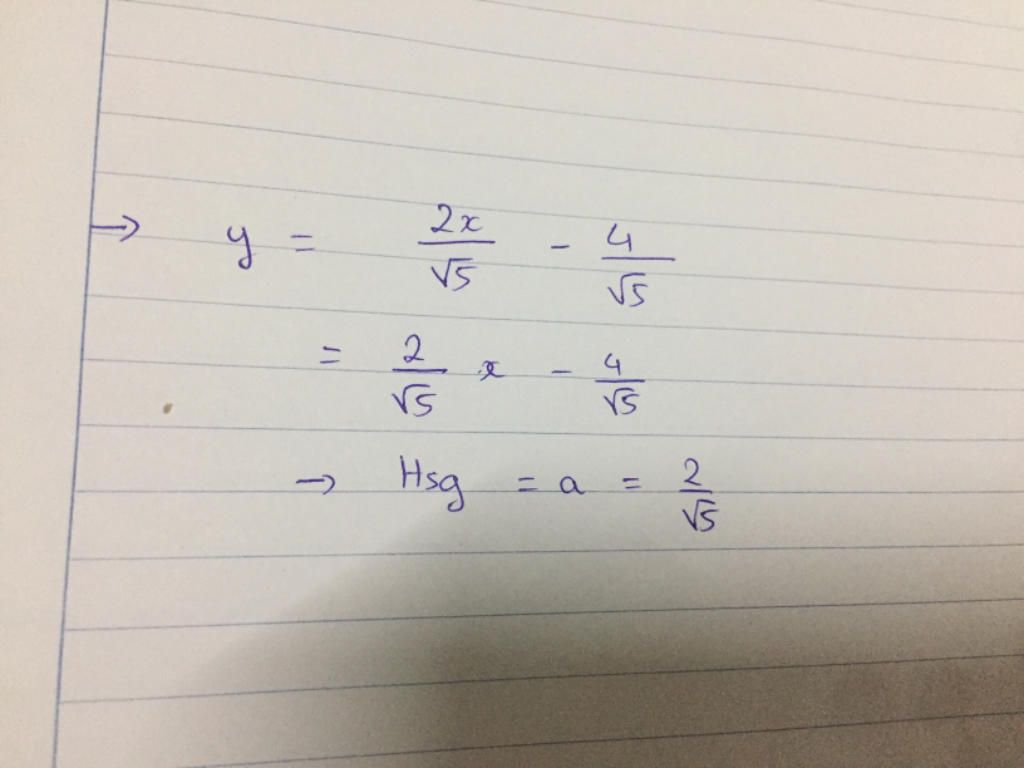 → y = 2x/√5 - 4/√5
= 2/√5 x - 4/√5
→ Hsg = a = 2/√5